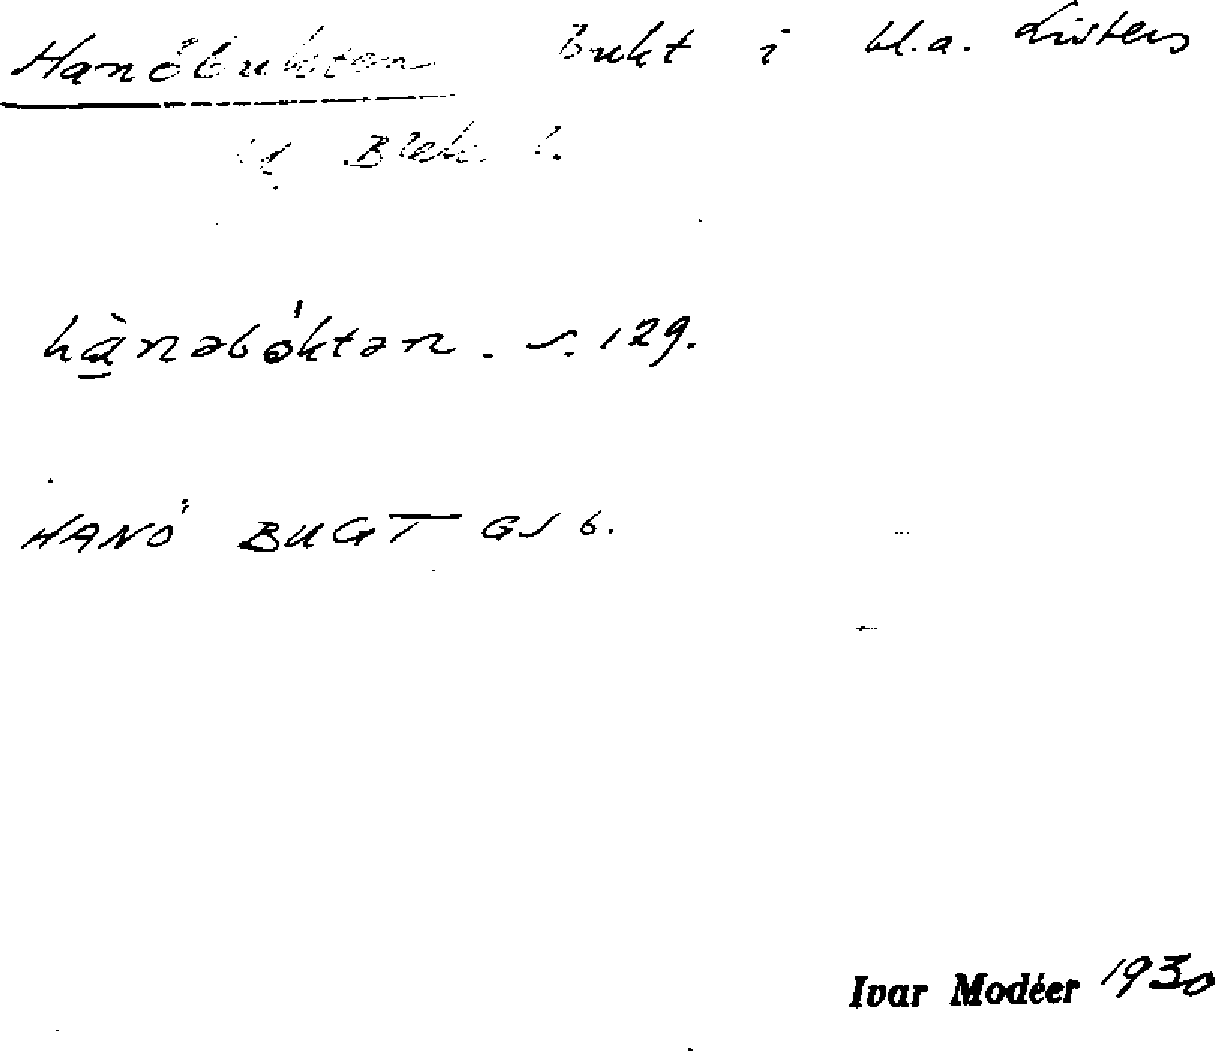 Hanöbukten Bukt i bl.a. Listers
Blek. l.
hànəbóktən. s. 129.
HANÖ BUGT GS 6.
Ivar Modéer 1930